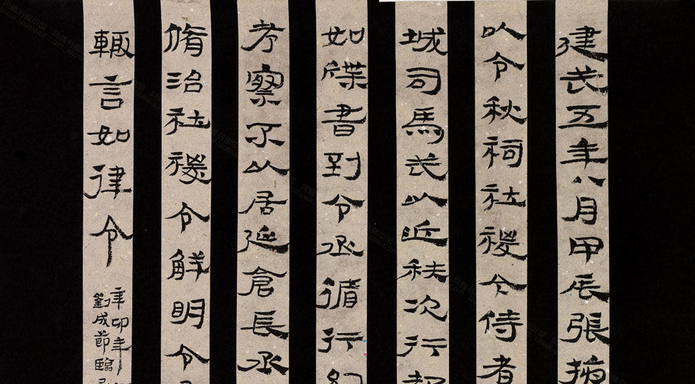 建武五年八月甲辰張掖
以令秋祠社稷令侍者
城司馬武以近秩次行都
如牒書到令丞循行
考察不以居延倉長丞
脩治社稷令鮮明令
輒言如律令
辛卯年
劉成節臨